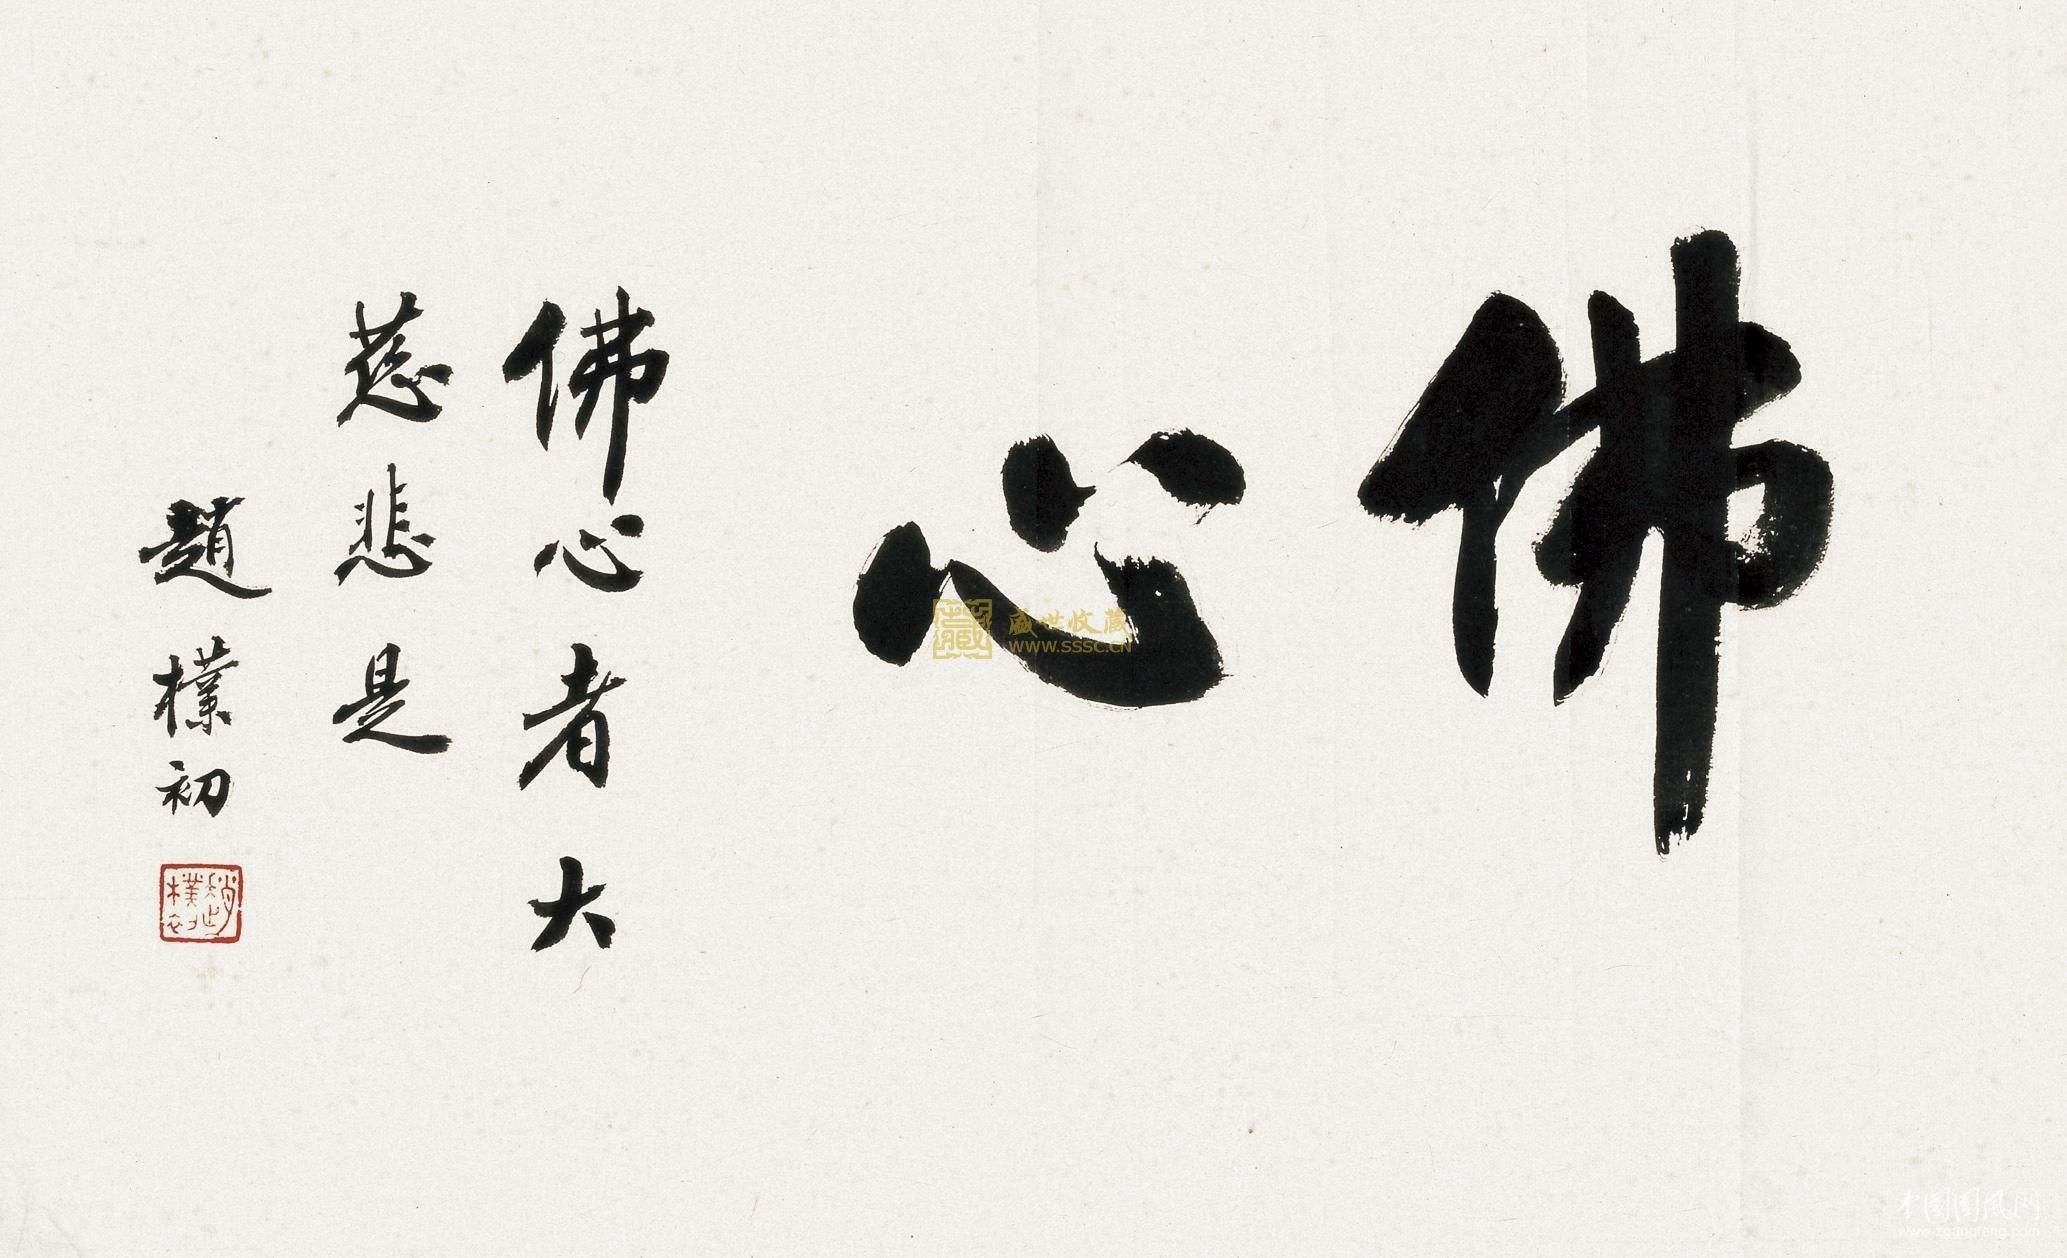 佛心
佛心者大
慈悲是
趙樸初
趙樸初
盛世收藏
WWW.SSSC.CN